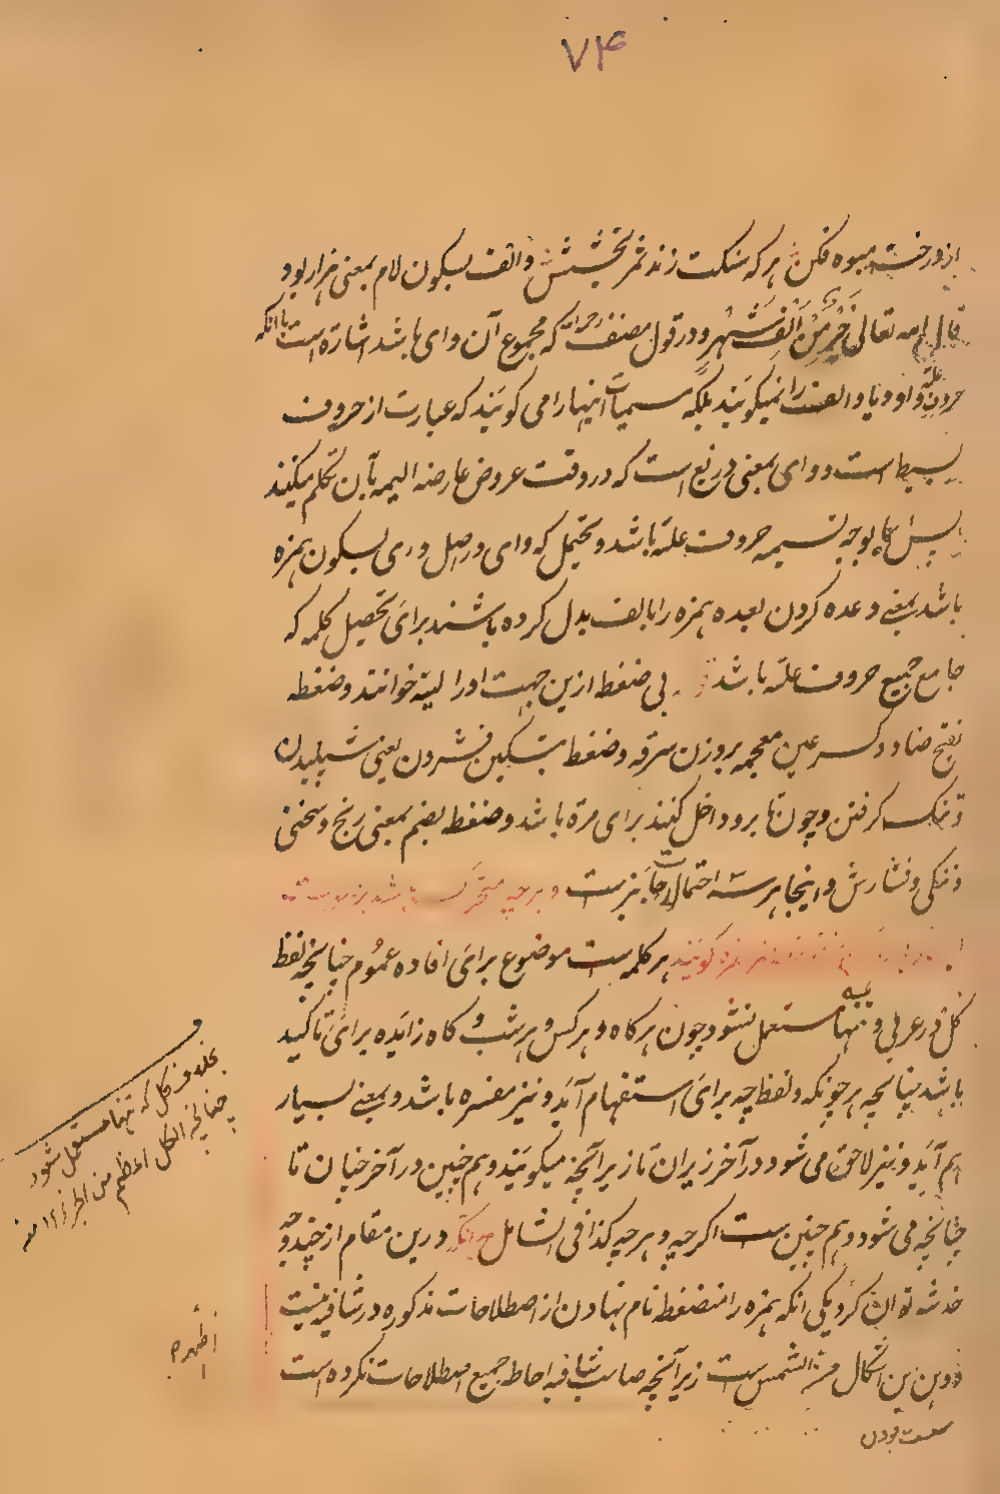 ۷۴
از درخت میوه فکن هر که سنگت زند ثمر بخشش و الف بسکون لام بمعنی هزار بود
قال الله تعالی خیر من الف شهر و در قول مصنف رح که مجموع آن وای باشد اشارة است بانکه
حروف علة واو و یا و الف را نمیگویند بلکه مسمیات اینها را می گویند که عبارت از حروف
بسیط است و وای بمعنی دریغ است که در وقت عروض عارضه الیمه بآن تکلم میکنند
پس بوجه تسمیه حروف علة باشد و یحتمل که وای در اصل وءی بسکون همزه
باشد بمعنی وعده کردن بعده همزه را بالف بدل کرده باشند برای تحصیل کلمه که
جامع جمیع حروف علة باشد بی ضغطه ازین جهت او را لینه خوانند و ضغطه
بفتح ضاد و کسر عین معجمه بر وزن سرقه و ضغط بتسکین فشردن یعنی شپلیدن
و تنگ گرفتن و چون تا برو داخل کنند برای مرة باشد و ضغطه بضم بمعنی رنج و سختی
و تنگی و فشارش و اینجا هر سه احتمالات جایزست و هر چه متحرک باشد
همزه گویند هر کلمه ایست موضوع برای افاده عموم چنانچه لفظ
کل در عربی و تنها مستعمل نشود چون هر گاه و هر کس و هر شب و گاه زایده برای تاکید
باشد چنانچه هر چونکه و لفظ چه برای استفهام آید و نیز مفسره باشد و بمعنی بسیار
هم آید و نیز لاحق می شود در آخر زیر ان تا زیرانچه میگویند و هم چنین در آخر چنان تا
چنانچه می شود و هم چنین ست اگر چه و هر چه کذا فی الشامل بدانکه درین مقام از چند وجه
خدشه توان کرد یکی انکه همزه را منضغطه نام نهادن از اصطلاحات مذکوره در شافیه نیست
و این اشکال من الشمس ست زیرا آنچه صاحب شافیه احاطه جمیع اصطلاحات نکرده است
بخلاف کل که تنها مستعمل شود
چنانچه الکل اعظم من الجزء ۱۲ منه